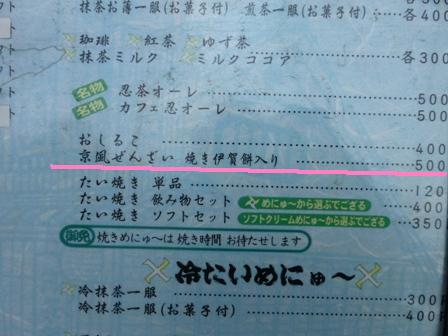 抹茶お薄一服(お菓子付) 煎茶一服(お菓子付) 各400
珈琲 紅茶 ゆず茶 各300
抹茶ミルク ミルクココア 各400
名物 忍茶オーレ 500
名物 カフェ忍オーレ 500
おしるこ 400
京風ぜんざい 焼き伊賀餅入り 500
たい焼き 単品 120
たい焼き 飲み物セット めにゅ〜から選ぶでござる 400
たい焼き ソフトセット ソフトクリームめにゅ〜から選ぶでござる 350
焼きめにゅ〜は焼き時間 お待たせします
冷たいめにゅ〜
冷抹茶一服 300
冷抹茶一服(お菓子付) 400